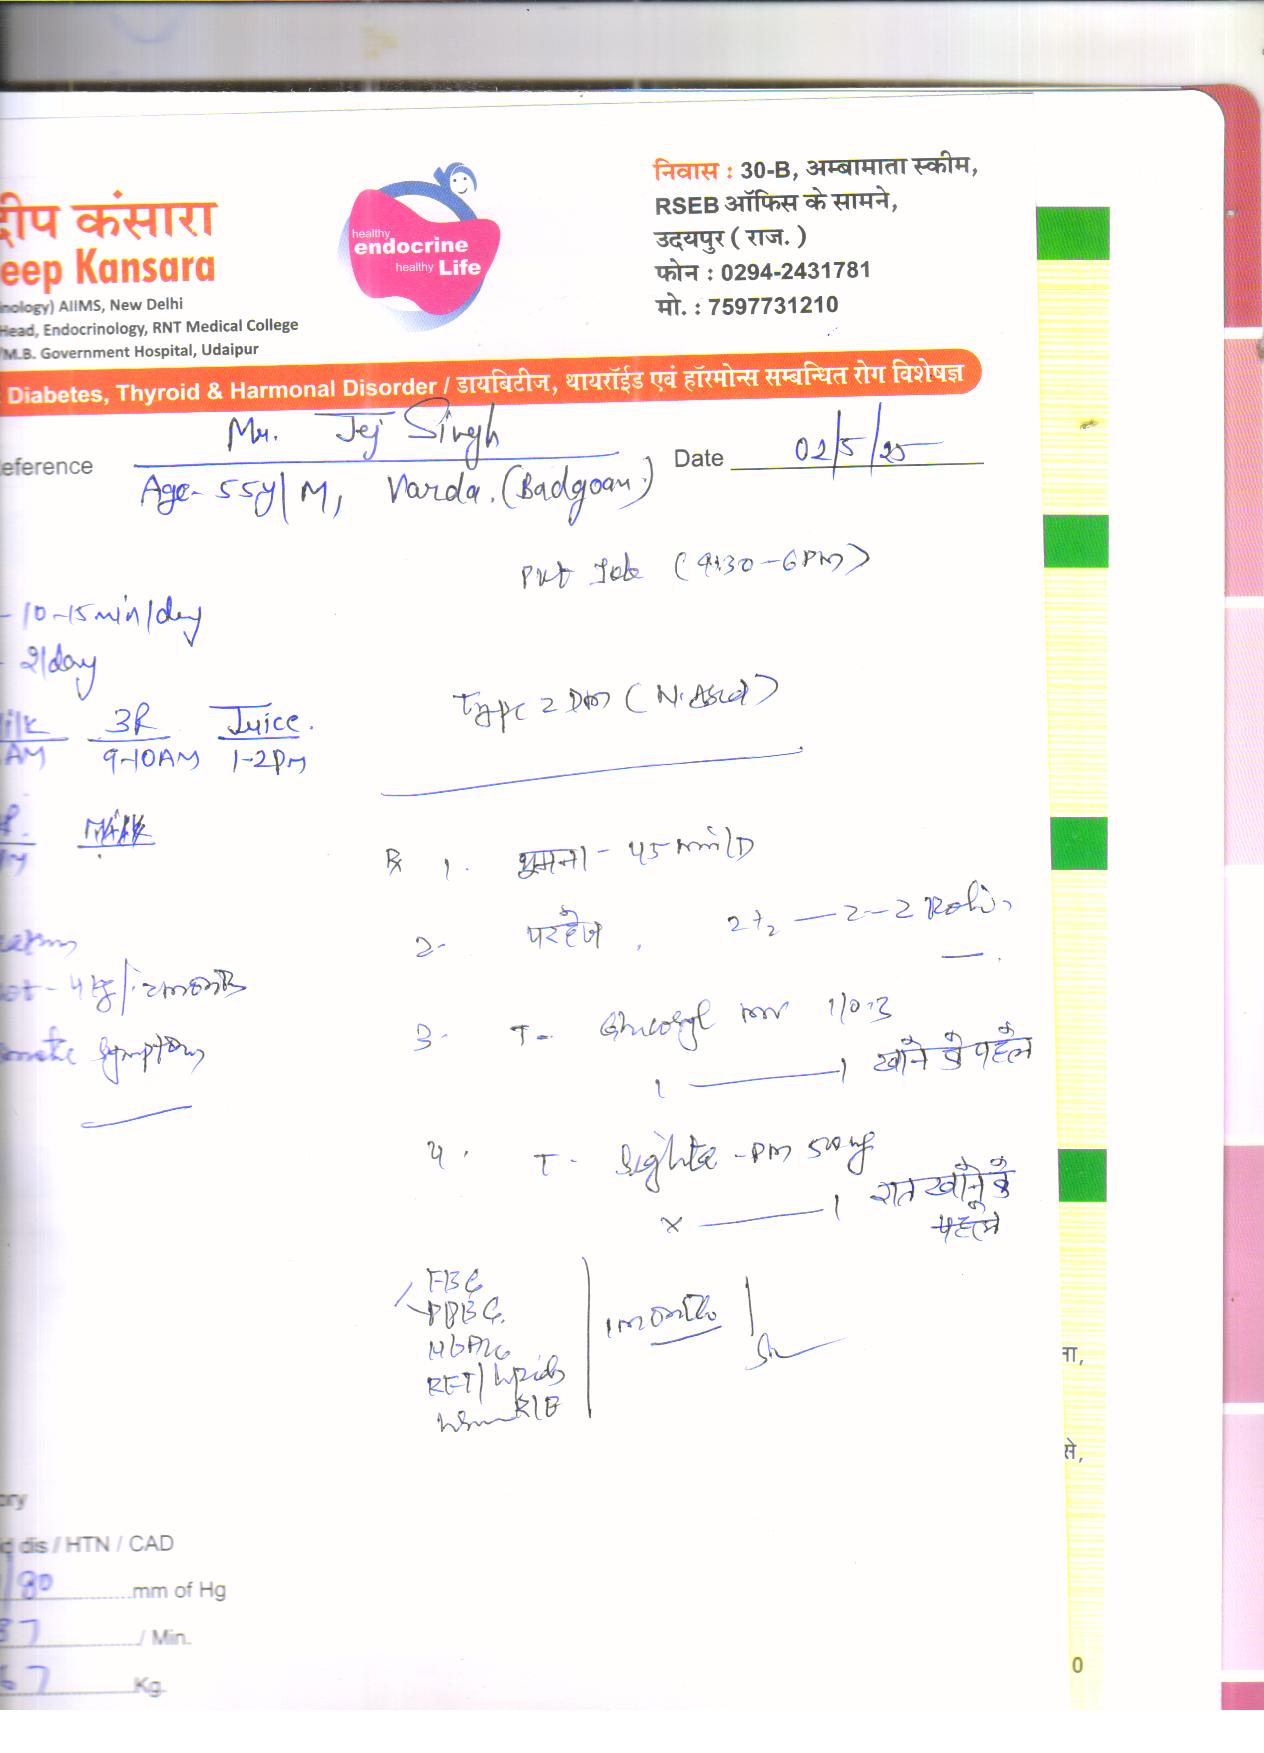 दीप कंसारा
eep Kansara
inology) AIIMS, New Delhi
Head, Endocrinology, RNT Medical College
/M.B. Government Hospital, Udaipur
healthy
endocrine
healthy Life
निवास : 30-B, अम्बामाता स्कीम,
RSEB ऑफिस के सामने,
उदयपुर ( राज. )
फोन : 0294-2431781
मो. : 7597731210
Diabetes, Thyroid & Harmonal Disorder / डायबिटीज, थायरॉईड एवं हॉरमोन्स सम्बन्धित रोग विशेषज्ञ
eference Mr. Tej Singh Date 02/5/25
Age- 55y/M, Varda. (Badgoan.)
Pvt Job (9:30-6PM)
- 10-15min/day
- 2/day
ilk 3R Juice.
AM 9-10AM 1-2PM
Milk
Type 2 DM
Rx 1. घूमना - 45 min/D
2- परहेज , 2+2 — 2-2 Roti
- 4 kg/2months
symptoms
3- T- MV 1/0.3
1 — 1 खाने के पहले
4. T- -PM 50
x — 1 रात खाने के
पहले
FBG
PPBG.
HbA1c
RFT/Lipids
R/E
1 month
ory
id dis / HTN / CAD
/80 mm of Hg
87 / Min.
67 Kg.
ना,
से,
0